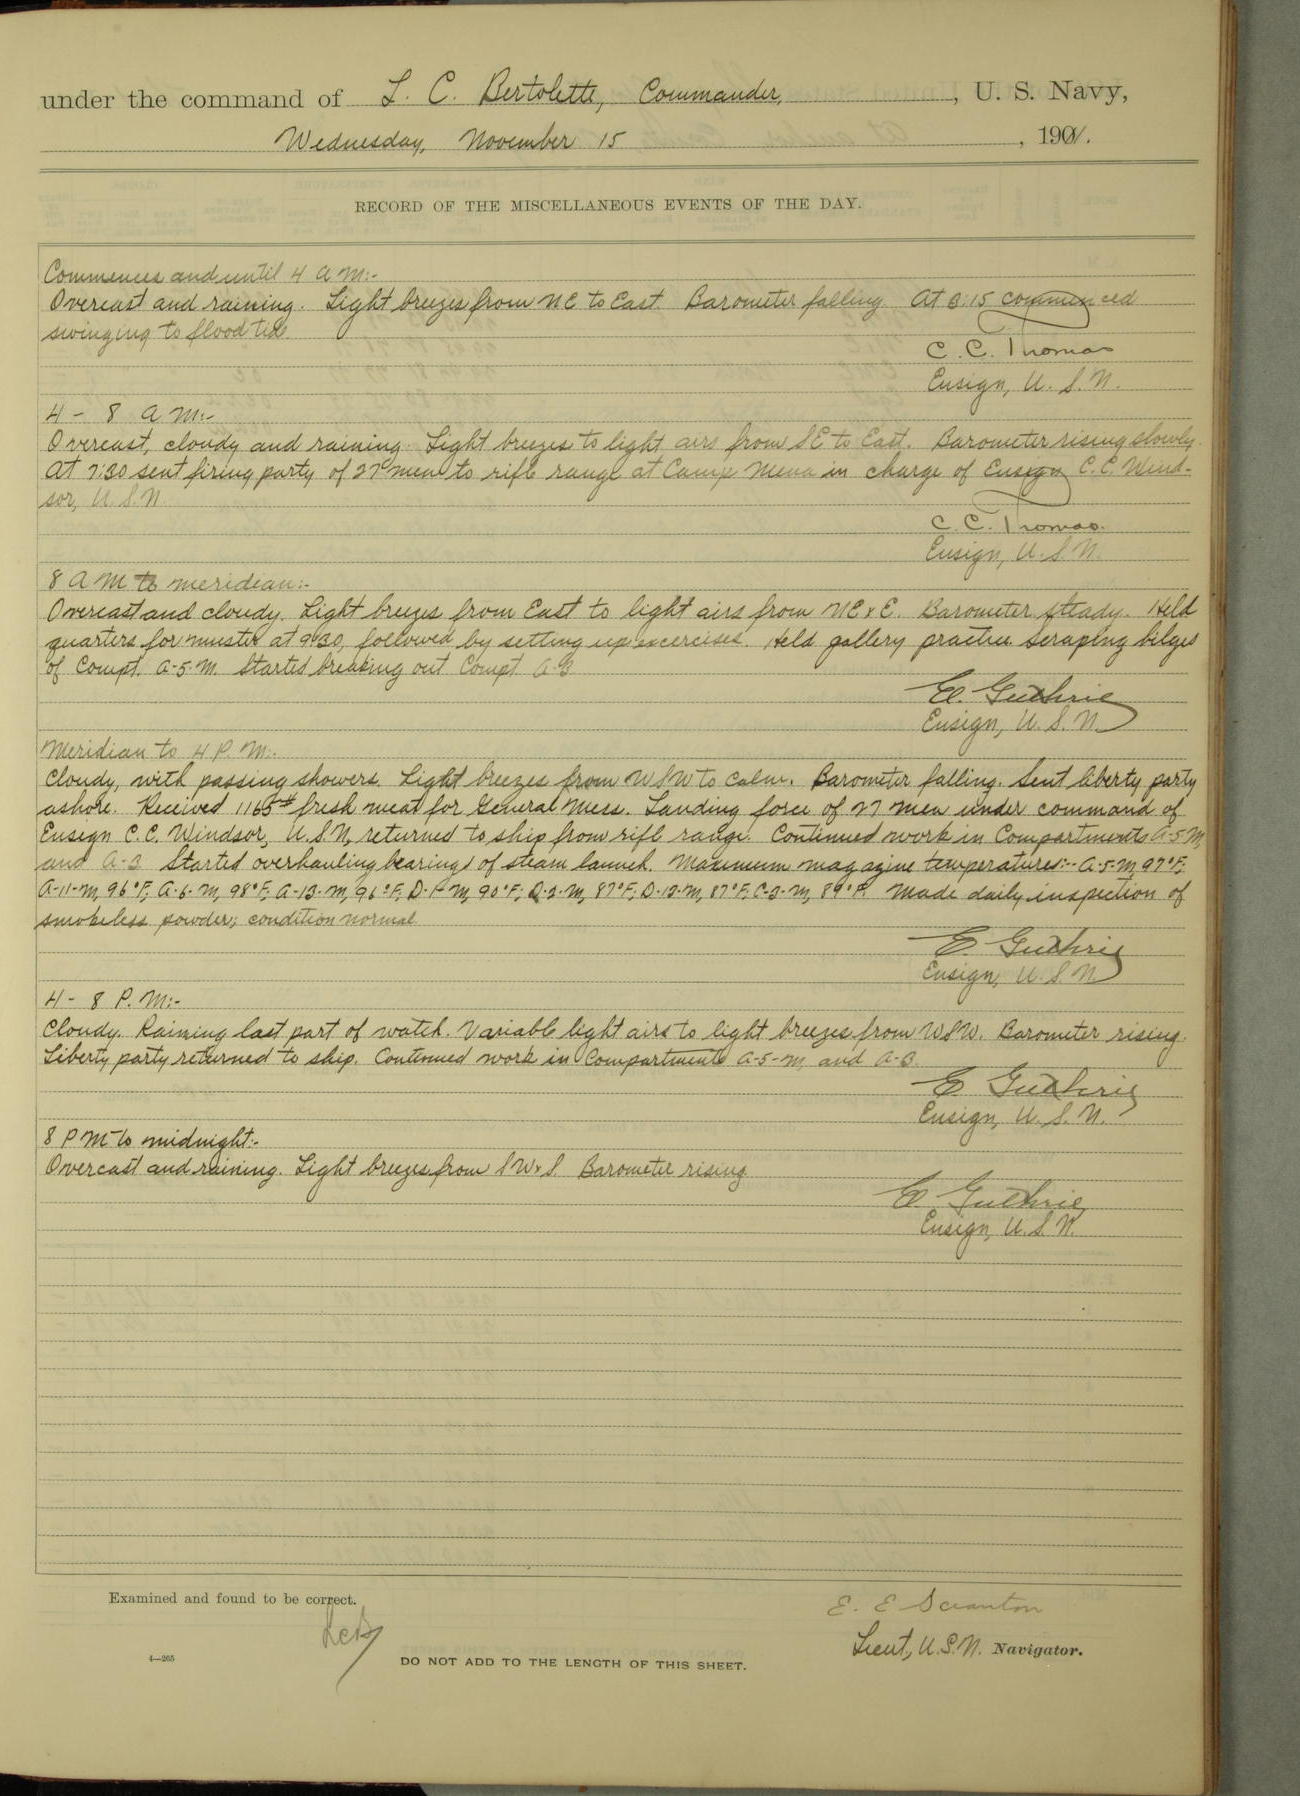 under the command of L. C. Bertolette, Commander, , U. S. Navy,
Wednesday, November 15 , 1911.
RECORD OF THE MISCELLANEOUS EVENTS OF THE DAY.
Commences and until 4 A M:-
Overcast and raining. Light breezes from NE to East. Barometer falling. At 3:15 commenced
swinging to flood tide.
C. C. Thomas
Ensign, U. S. N.
4 - 8 A M:-
Overcast, cloudy and raining. Light breezes to light airs from SE to East. Barometer rising slowly.
At 7:30 sent firing party of 27 men to rifle range at Camp in charge of Ensign C. C. Wind-
sor, U. S. N.
C. C. Thomas.
Ensign, U. S. N.
8 A M to meridian:-
Overcast and cloudy. Light breezes from East to light airs from NE x E. Barometer steady. Held
quarters for muster at 9:30, followed by setting up exercises. Held gallery practice. Scraping bilges
of Compt. A-5-M. Started breaking out Compt A-3
E. Guthrie
Ensign, U. S. N.
Meridian to 4 P. M:-
Cloudy, with passing showers. Light breezes from WSW to calm. Barometer falling. Sent liberty party
ashore. Received 1165# fresh meat for General Mess. Landing force of 27 men under command of
Ensign C. C. Windsor, U. S. N, returned to ship from rifle range. Continued work in Compartments A-5-M,
and A-3. Started overhauling bearings of steam launch. Maximum magazine temperatures:- A-5-M, 97°F;
A-11-M, 96°F; A-6-M, 98°F; A-13-M, 96°F; D-1-M, 90°F; D-2-M, 87°F; D-12-M, 87°F; C-3-M, 89°F. Made daily inspection of
smokeless powder; condition normal.
E. Guthrie
Ensign, U. S. N.
4 - 8 P. M:-
Cloudy. Raining last part of watch. Variable light airs to light breezes from WSW. Barometer rising.
Liberty party returned to ship. Continued work in Compartments A-5-M, and A-3.
E. Guthrie
Ensign, U. S. N.
8 P M to midnight:-
Overcast and raining. Light breezes from SW x S. Barometer rising
E. Guthrie
Ensign, U. S. N.
Examined and found to be correct.
LCB
E. E. Scranton
Lieut, U. S. N. Navigator.
4—265
DO NOT ADD TO THE LENGTH OF THIS SHEET.